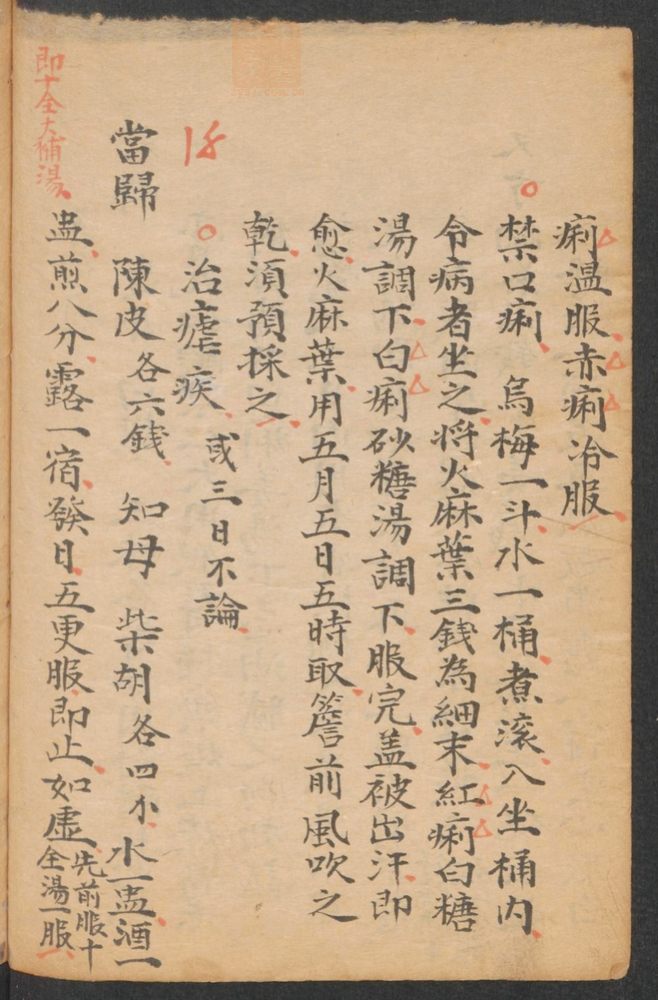 痢温服赤痢冷服
禁口痢 烏梅一斗水一桶煮滚入坐桶内
令病者坐之将火麻葉三錢為細末紅痢白糖
湯調下白痢砂糖湯調下服完盖被出汗即
愈火麻葉用五月五日五時取簷前風吹之
乾須預採之
治瘧疾 或三日不論
當歸 陳皮各六錢 知母 柴胡各四小 水一盅酒一
盅煎八分露一宿發日五更服即止如虛先前服十全湯一服
即十全大補湯